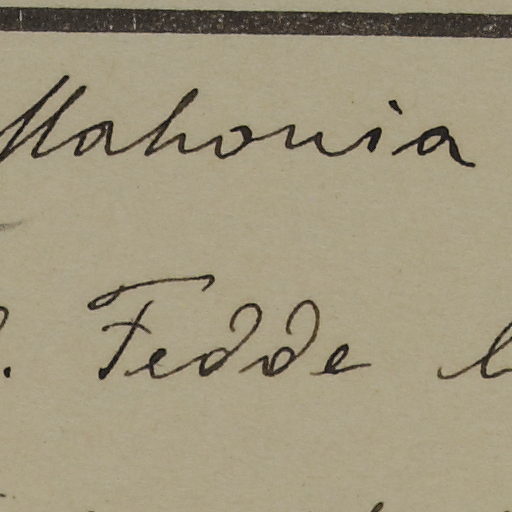 Mahonia
. Fedde